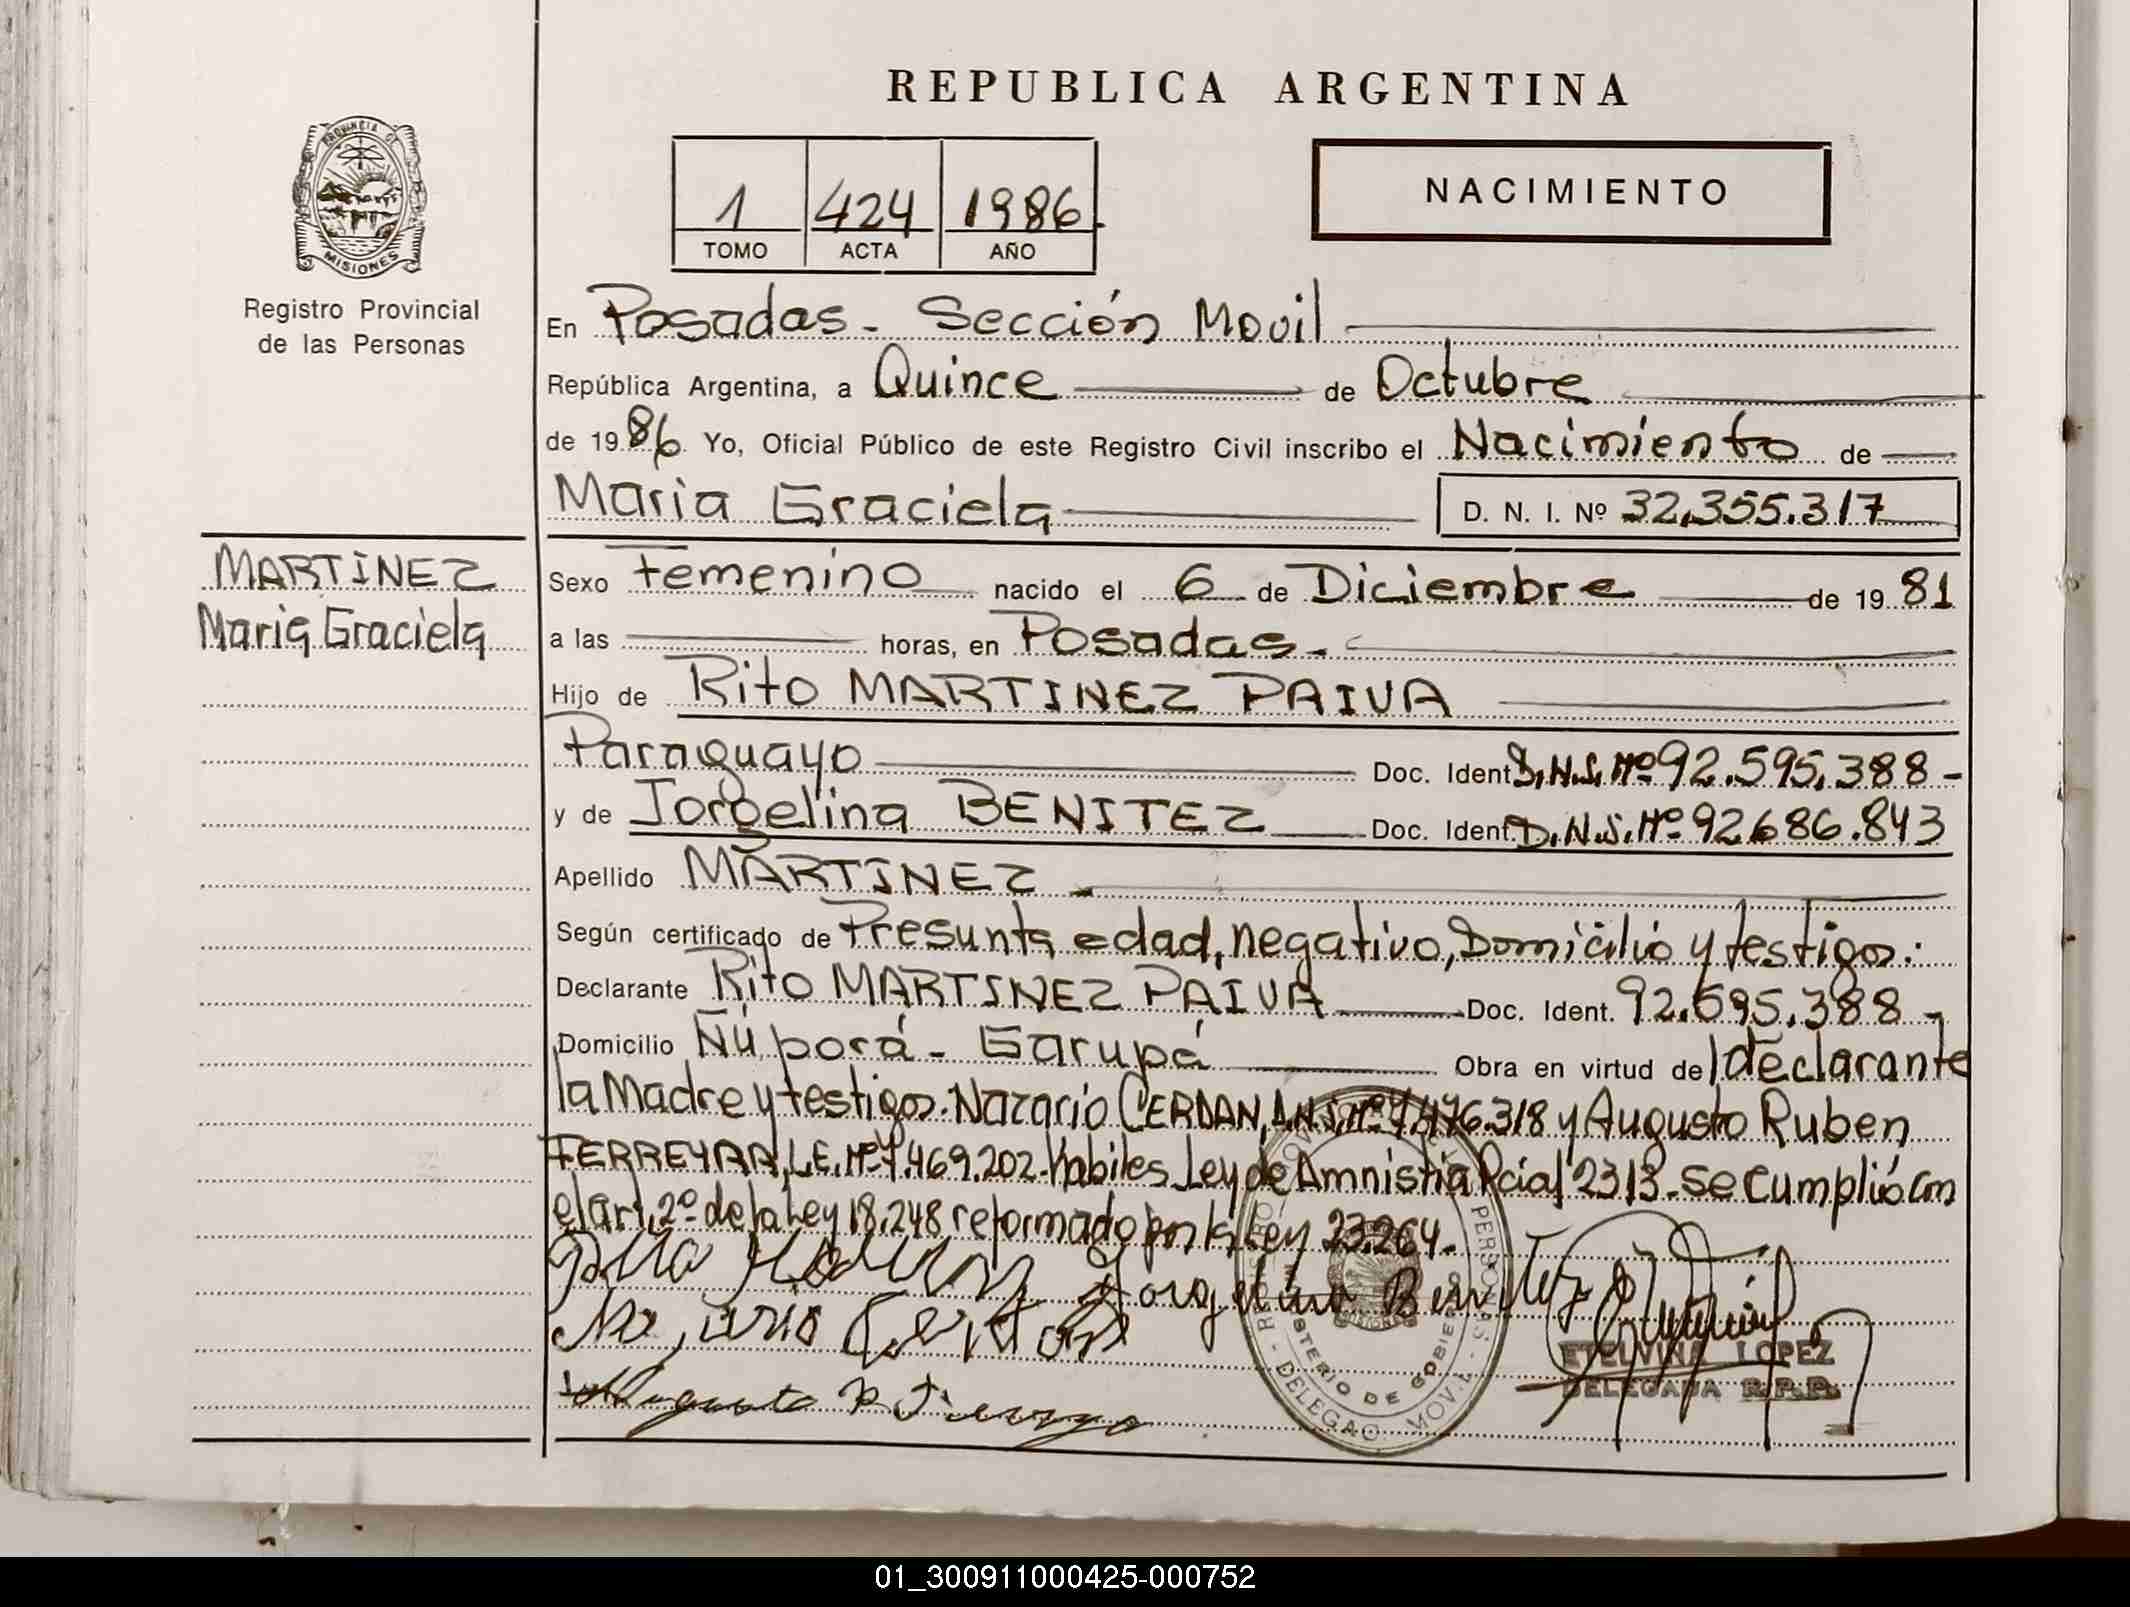 REPUBLICA ARGENTINA
PROVINCIA DE
MISIONES
Registro Provincial
de las Personas
1 424 1986
TOMO ACTA AÑO
NACIMIENTO
En Posadas - Sección Movil
República Argentina, a Quince de Octubre
de 1986 Yo, Oficial Público de este Registro Civil inscribo el Nacimiento de
Maria Graciela D. N. I. Nº 32.355.317
MARTINEZ
Maria Graciela
Sexo Femenino nacido el 6 de Diciembre de 1981
a las horas, en Posadas.
Hijo de Rito MARTINEZ PAIVA
Paraguayo Doc. Ident. D.N.I. Nº 92.595.388-
y de Jorgelina BENITEZ Doc. Ident. D.N.I. Nº 92.686.843
Apellido MARTINEZ
Según certificado de Presunta edad, negativo, Domicilio y testigos:
Declarante Rito MARTINEZ PAIVA Doc. Ident. 92.595.388-
Domicilio Ñú porá - Garupá Obra en virtud de declarante
la Madre y testigos. Nazario CERDAN, D.N.I. Nº 7.476.318 y Augusto Ruben
FERREYRA, L.E. Nº 7.469.202. Habiles Ley de Amnistia Pcial 2313. Se Cumplió con
el art. 2º de la Ley 18.248 reformado por la Ley 23.264.
Jorgelina Benitez
ETELVINA LOPEZ
DELEGADA R.P.P.
MINISTERIO DE GOBIERNO
01_300911000425-000752